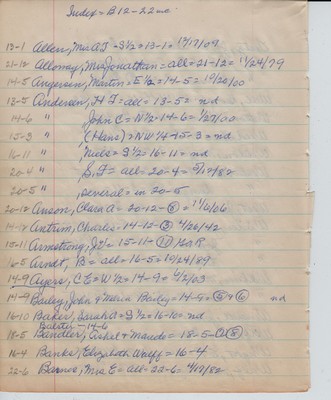 Index = B12-22 inc.
13-1 Allen, Mrs A.J = S½ = 13-1 = 12/17/09
21-12 Allomey, Mrs Jonathan = all = 21-12 = 11/24/79
14-5 Angerson, Martin = E½ = 14-5 = 10/20/00
13-5 Anderson, H J = all = 13-5 = nd
14-6 " , John C = N½ = 14-6 = 1/27/00
15-3 " , (Hans) = NW¼ = 15-3 = nd
16-11 " , Niels = S½ = 16-11 = nd
20-4 " , S.J = all = 20-4 = 5/12/82
20-5 " , several = in 20-5
20-12 Anson, Clara A = 20-12 - 8 = 11/6/06
14-12 Antrim, Charles = 14-12 - 3 4/26/42
15-11 Armstrong, = 15-11 - G.A.R
16-5 Arndt, B = all = 16-5 = 10/24/89
14-9 Ayers, C E = W½ = 14-9 = 6/2/03
14-9 Bailey, John & Maria Bailey = 14-9 = 5 & 6 nd
16-10 Baker, Sarah A = S½ = 16-10 = nd
Balster - 14-6
18-5 Bandler, & Maude = 18-5 -
16-4 Banks, Elizabeth Wolff = 16-4
22-6 Barnes, Mrs E = all = 22-6 = 4/17/82